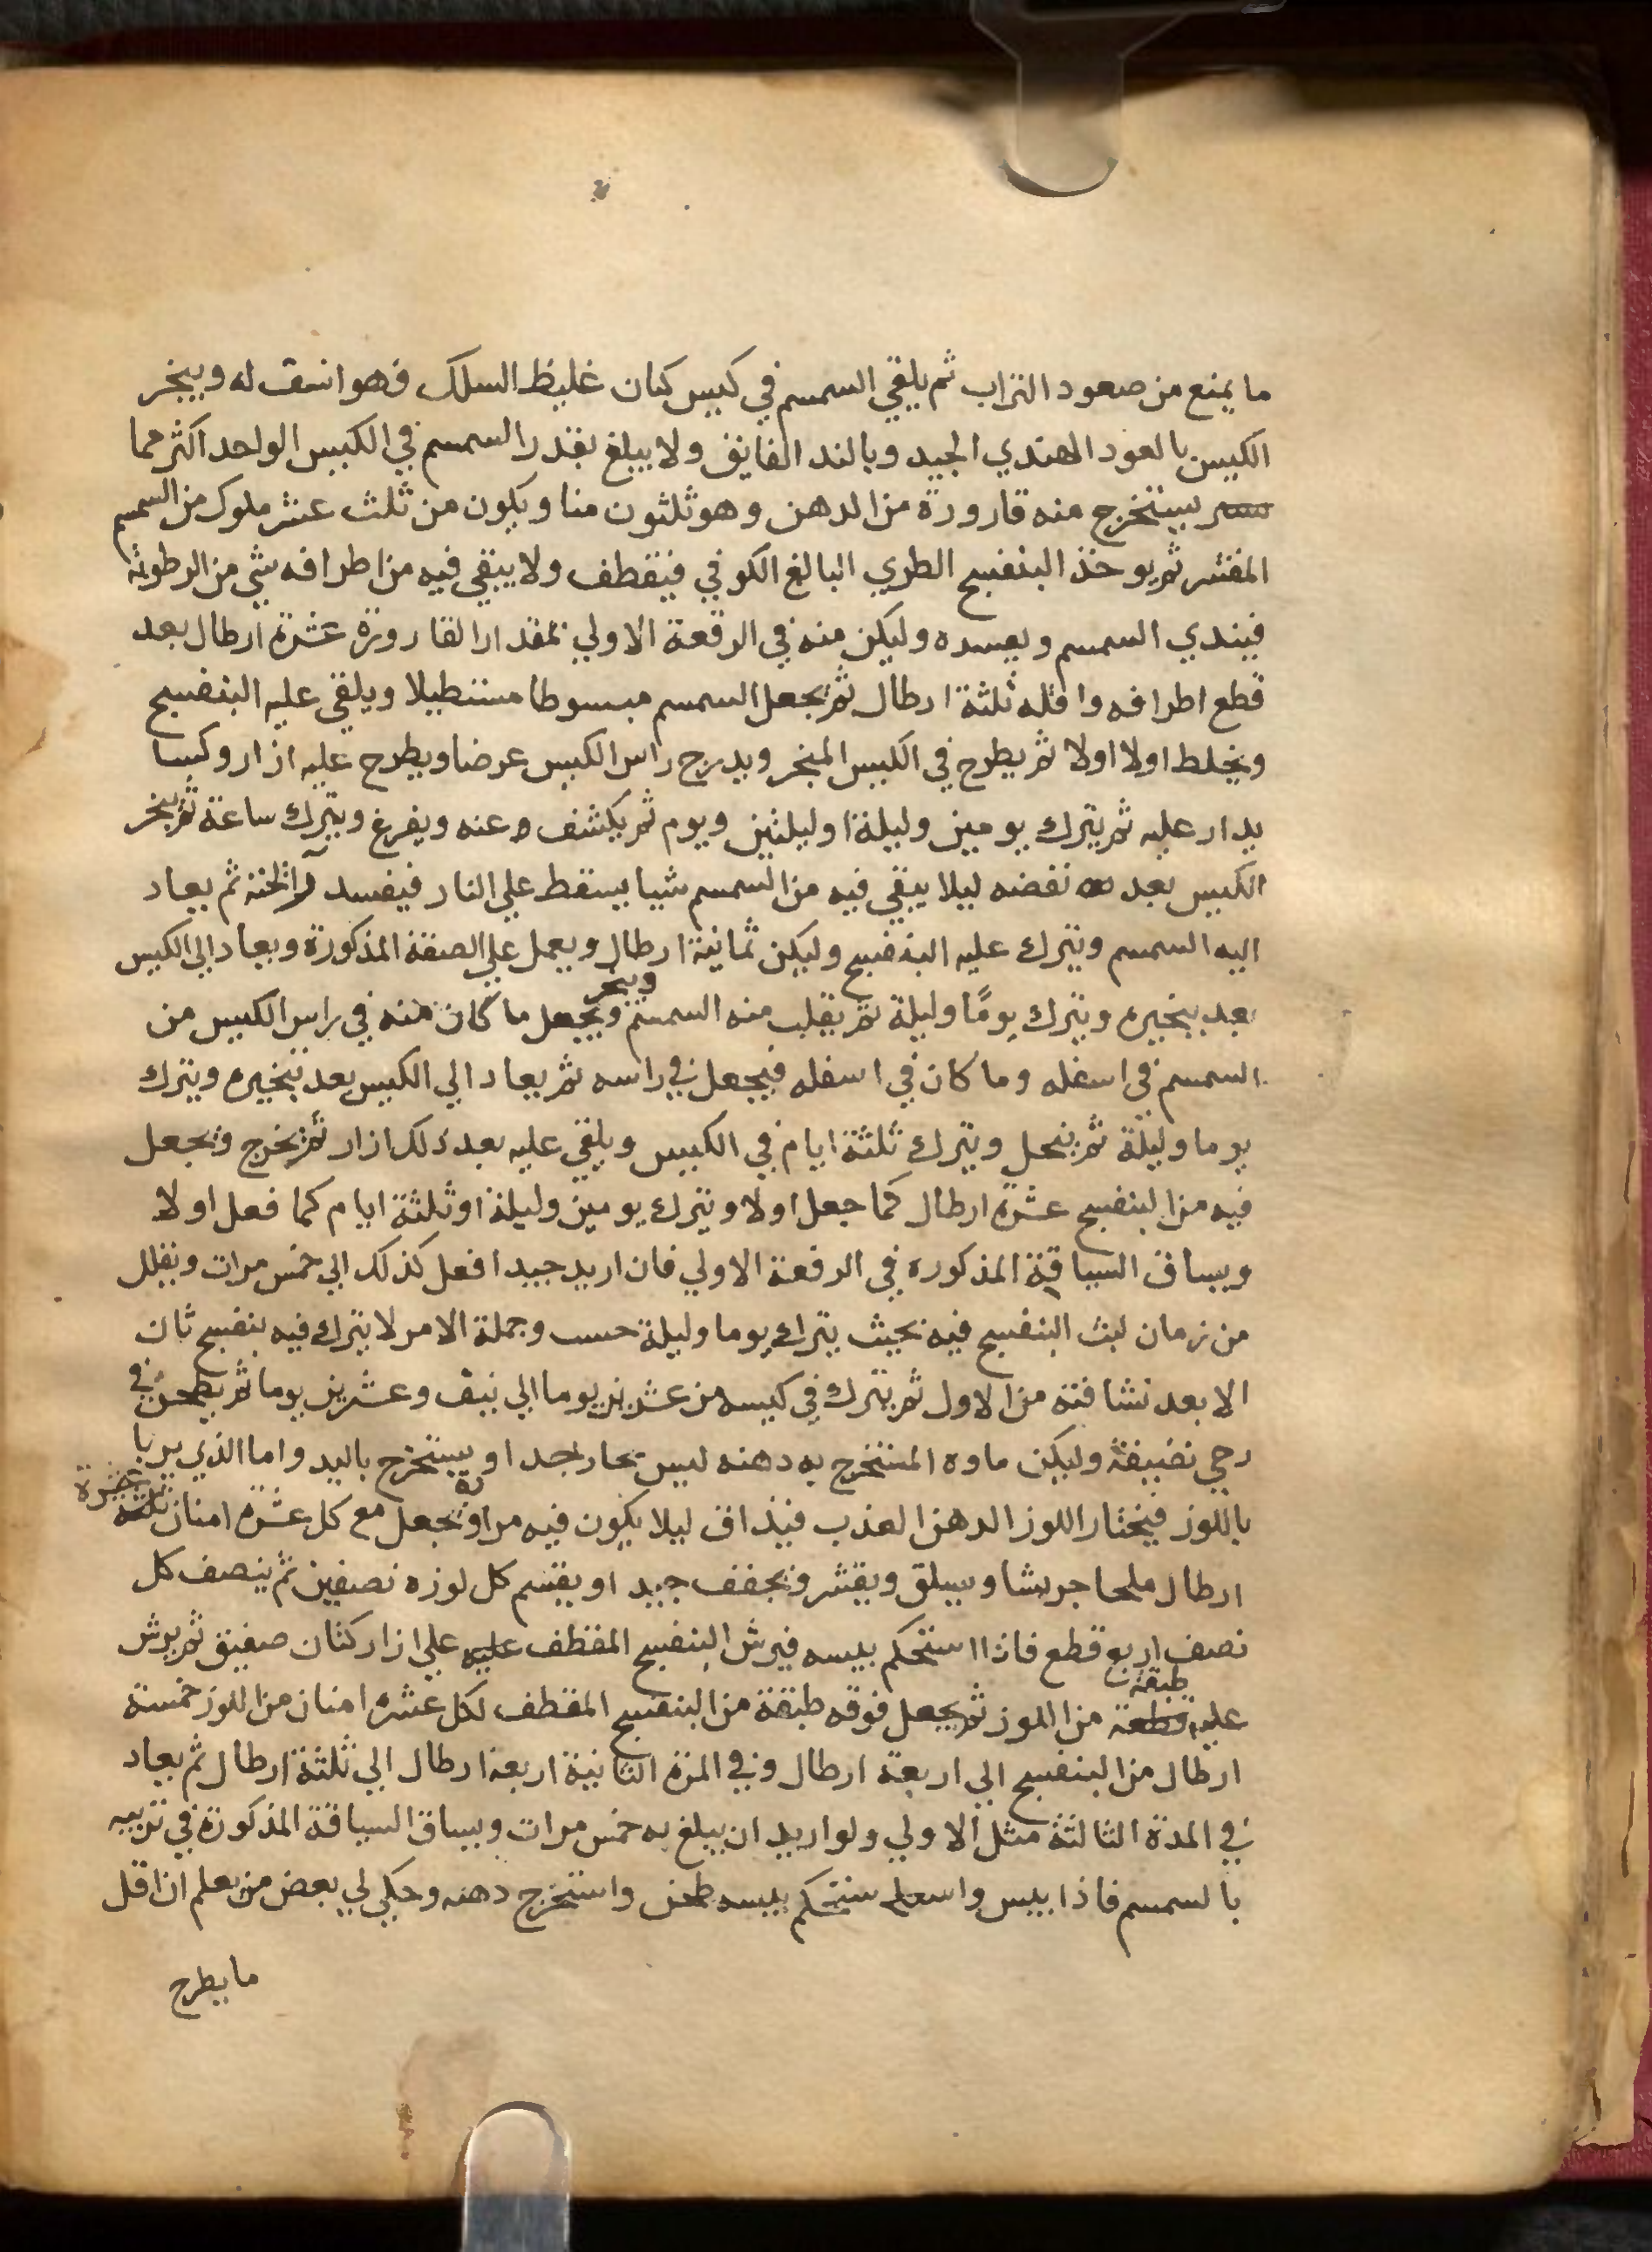 ما يمنع من صعود التراب ثم يلقي السمسم في كيس كتان غليظ السلك فهو انشف له ويبخر
الكيس بالعود الهندي الجيد وبالند الفايق ولا يبلغ بقدر السمسم في الكيس الواحد اكثر مما
يستخرج منه قارورة من الدهن وهو ثلثون منا ويكون من ثلث عشر ملوك من السمسم
المقشر ثم يوخذ البنفسج الطري البالغ الكوفي فيقطف ولا يبقي فيه من اطرافه شي من الرطوبة
فيندي السمسم ويفسده وليكن منه في الرقعة الاولي بمقدار القارورة عشرة ارطال بعد
قطع اطرافه واقله ثلثة ارطال ثم يجعل السمسم مبسوطا مستطيلا ويلقي عليه البنفسج
ويخلط اولا اولا ثم يطرح في الكيس المبخر ويدرج راس الكيس عرضا ويطرح عليه ازار وكسا
يدار عليه ثم يترك يومين وليلة او ليلتين ويوم ثم يكشف عنه ويفرغ ويترك ساعة ثم يبخر
الكيس بعد نفضه ليلا يبقي فيه من السمسم شيا يسقط علي النار فيفسد رائحته ثم يعاد
اليه السمسم ويترك عليه البنفسج وليكن ثمانية ارطال ويعمل علي الصفة المذكورة ويعاد الي الكيس
بعد تبخيره ويترك يومًا وليلة ثم يقلب منه السمسم ويجعل ما كان منه في راس الكيس من
ويبخر
السمسم في اسفله وما كان في اسفله فيجعل في راسه ثم يعاد الي الكيس بعد تبخيره ويترك
يوما وليلة ثم ينخل ويترك ثلثة ايام في الكيس ويلقي عليه بعد ذلك ازار ثم يخرج ويجعل
فيه من البنفسج عشرة ارطال كما جعل اولا ويترك يومين وليلة او ثلثة ايام كما فعل اولا
ويساق السياقة المذكورة في الرفعة الاولي فان اريد جيدا فعل كذلك الي خمس مرات ويقلل
من زمان لبث البنفسج فيه بحيث يترك يوما وليلة حسب وجملة الامر لا يترك فيه بنفسج ثان
الا بعد نشافته من الاول ثم يترك في كيسه من عشرين يوما الي نيف وعشرين يوما ثم يطحن في
رحي نضيفة وليكن ماوه المستخرج به دهنه ليس بحار جدا ويستخرج باليد واما الذي يربا
باللوز فيختار اللوز الدهن العذب فيذاق ليلا يكون فيه مراوة يجعل مع كل عشرة امنان ثلثة عشرة
ارطال ملحا جريشا ويسلق ويقشر ويجفف جيدا ويقسم كل لوزه نصفين ثم ينصف كل
نصف اربع قطع فاذا استحكم يبسه فيرش البنفسج المقطف عليه علي ازار كتان صفيق ثم يرش
طبقة
عليه قطعة من اللوز ثم يجعل فوقه طبقة من البنفسج المقطف لكل عشرة امنان من اللوز خمسة
ارطال من البنفسج الي اربعة ارطال وفي المرة الثانية اربعة ارطال الي ثلثة ارطال ثم يعاد
في المدة الثالثة مثل الاولي ولو اريد ان يبلغ به خمس مرات ويساق السياقة المذكورة في تربيه
بالسمسم فاذا يبس واستحكم يبسه طحن واستخرج دهنه وحكي لي بعض من يعلم ان اقل
ما يطرح